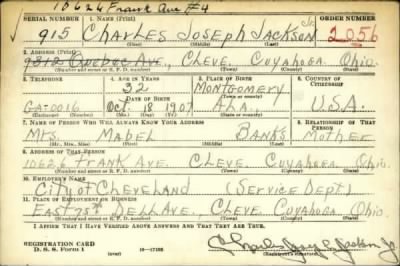 10626 Frank Ave #4
SERIAL NUMBER 1. NAME (Print) ORDER NUMBER
915 Charles Joseph Jackson Jr. 2056
(First) (Middle) (Last)
2. ADDRESS (Print)
9812 Quebec Ave., Cleve. Cuyahoga Ohio.
(Number and street or R. F. D. number) (Town) (County) (State)
3. TELEPHONE 4. AGE IN YEARS 5. PLACE OF BIRTH 6. COUNTRY OF CITIZENSHIP
32 Montgomery
DATE OF BIRTH (Town or county)
GA-0016 Oct. 18 1907 Ala. U.S.A.
(Exchange) (Number) (Mo.) (Day) (Yr.) (State or country)
7. NAME OF PERSON WHO WILL ALWAYS KNOW YOUR ADDRESS 8. RELATIONSHIP OF THAT PERSON
Mrs. Mabel Banks Mother
(Mr., Mrs., Miss) (First) (Middle) (Last)
9. ADDRESS OF THAT PERSON
10626 Frank Ave. Cleve. Cuyahoga Ohio.
(Number and street or R. F. D. number) (Town) (County) (State)
10. EMPLOYER'S NAME
City of Cleveland (Service Dept)
11. PLACE OF EMPLOYMENT OR BUSINESS
East 75th Dell Ave., Cleve. Cuyahoga Ohio.
(Number and street or R. F. D. number) (Town) (County) (State)
I AFFIRM THAT I HAVE VERIFIED ABOVE ANSWERS AND THAT THEY ARE TRUE.
REGISTRATION CARD
D. S. S. Form 1 (over) 16-17105
Jackson Jr.
(Registrant's signature)